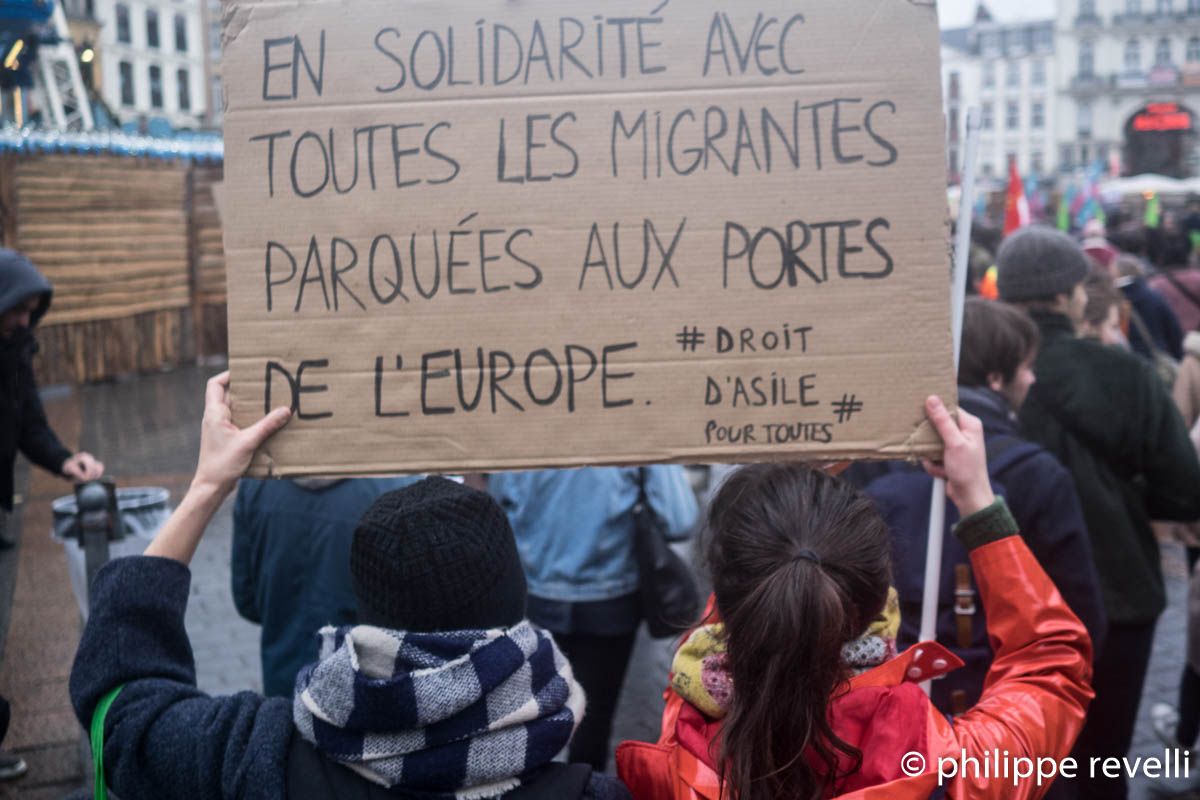 EN SOLIDARITÉ AVEC
TOUTES LES MIGRANTES
PARQUÉES AUX PORTES
DE L'EUROPE.
#DROIT
D'ASILE
POUR TOUTES#
© philippe revelli